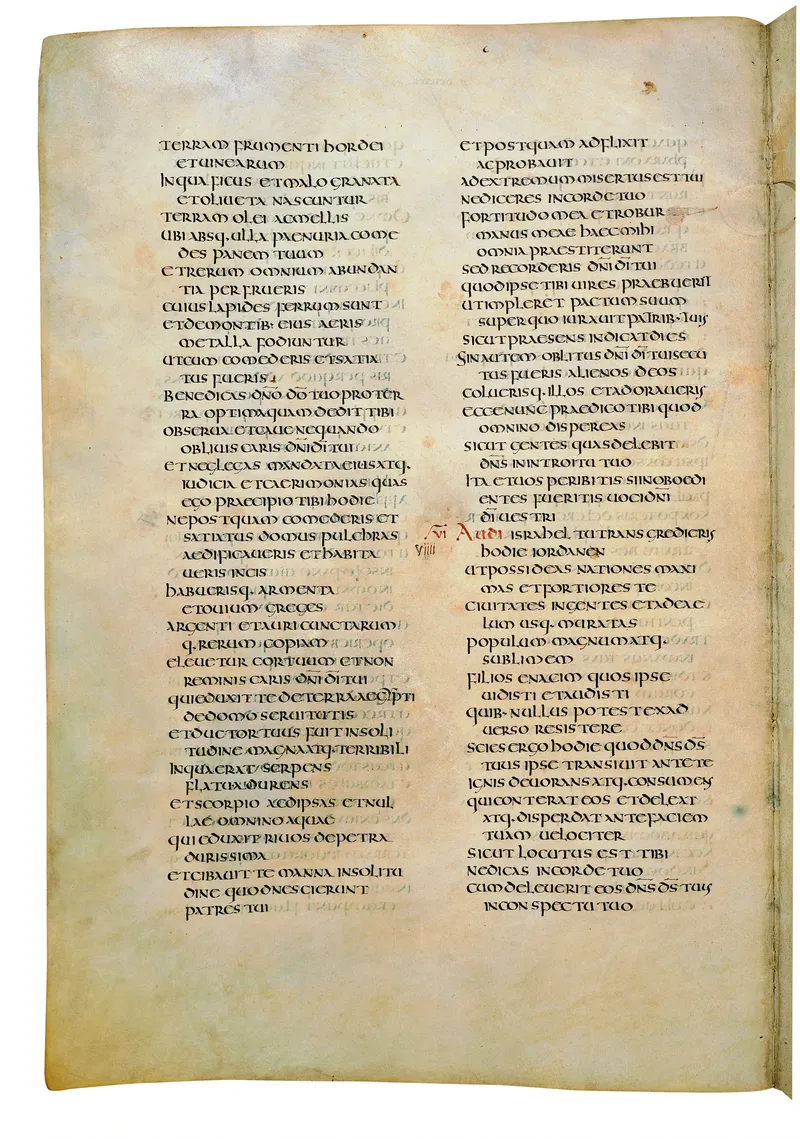 TERRAM FRUMENTI hORDEI
ETUINEARUM
INQUA FICUS ETMALOGRANATA
ETOLIUETA NASCUNTUR
TERRAM OLEI ACMELLIS
UBI ABSQ· ULLA PAENURIA COME
DES PANEM TUUM
ETRERUM OMNIUM ABUNDAN
TIA PERFRUERIS
CUIUS LAPIDES FERRUM SUNT
ETDEMONTIB· EIUS AERIS
METALLA FODIUNTUR
UTCUM COMEDERIS ETSATIA
TUS FUERIS
BENEDICAS DÑO DŌ TUO PROTER
RA OPTIMA QUAM DEDIT TIBI
OBSERUA ETCAUE NEQUANDO
OBLIUISCARIS DÑI DĪ TUI
ETNEGLEGAS MANDATA EIUS ATQ·
IUDICIA ETCAERIMONIAS QUAS
EGO PRAECIPIO TIBI hODIE
NEPOSTQUAM COMEDERIS ET
SATIATUS DOMUS PULChRAS
AEDIFICAUERIS EThABITA
UERIS INEIS
hABUERISQ· ARMENTA
ETOUIUM GREGES
ARGENTI ETAURI CUNCTARUM
Q· RERUM COPIAM
ELEUETUR CORTUUM ETNON
REMINISCARIS DÑI DĪ TUI
QUIEDUXIT TE DETERRA AEGIPTI
DEDOMO SERUITUTIS
ETDUCTOR TUUS FUIT INSOLI
TUDINE MAGNA ATQ· TERRIBILI
INQUA ERAT SERPENS
FLATU ADURENS
ETSCORPIO AEDIPSAS ETNUL
LAE OMNINO AQUAE
QUI EDUXIT RIUOS DEPETRA
DURISSIMA
ETCIBAUIT TE MANNA INSOLITU
DINE QUOD NESCIERUNT
PATRES TUI
ETPOSTQUAM ADFLIXIT
ACPROBAUIT
ADEXTREMUM MISERTUS EST TUI
NEDICERES INCORDE TUO
FORTITUDO MEA ETROBUR
MANUS MEAE hAEC MIhI
OMNIA PRAESTITERUNT
SED RECORDERIS DÑI DĪ TUI
QUOD IPSE TIBI UIRES PRAEBUERIT
UTIMPLERET PACTUM SUUM
SUPER QUO IURAUIT PATRIB· TUIS
SICUT PRAESENS INDICAT DIES
SINAUTEM OBLITUS DÑI DĪ TUI SECU
TUS FUERIS ALIENOS DEOS
COLUERISQ· ILLOS ETADORAUERIS
ECCE NUNC PRAEDICO TIBI QUOD
OMNINO DISPEREAS
SICUT GENTES QUAS DELEBIT
DÑS ININTROITU TUO
ITA ETUOS PERIBITIS SI INOBOEDI
ENTES FUERITIS UOCI DÑI
DĪ UESTRI
XVI AUDI ISRAhEL TU TRANSGREDIERIS
VIIII hODIE IORDANEN
UTPOSSIDEAS NATIONES MAXI
MAS ETFORTIORES TE
CIUITATES INGENTES ETADCAE
LUM USQ· MURATAS
POPULUM MAGNUM ATQ·
SUBLIMEM
FILIOS ENACIM QUOS IPSE
UIDISTI ETAUDISTI
QUIB· NULLUS POTEST EXAD
UERSO RESISTERE
SCIES ERGO hODIE QUOD DÑS D̄S
TUUS IPSE TRANSIUIT ANTE TE
IGNIS DEUORANS ATQ· CONSUMENS
QUI CONTERAT EOS ETDELEAT
ATQ· DISPERDAT ANTE FACIEM
TUAM UELOCITER
SICUT LOCUTUS EST TIBI
NEDICAS INCORDE TUO
CUM DELEUERIT EOS DÑS D̄S TUUS
INCONSPECTU TUO